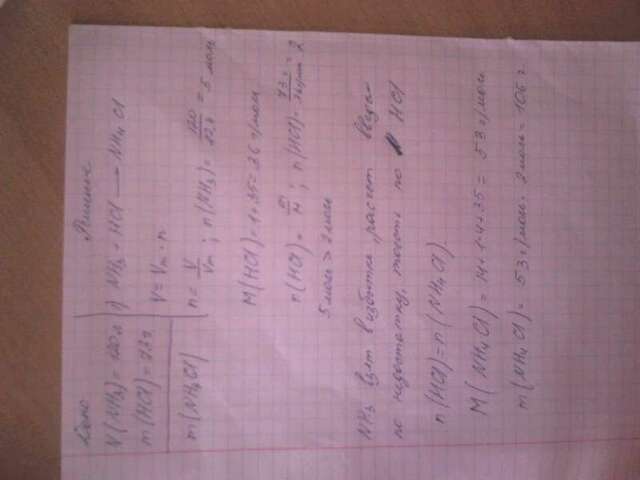 Дано
Решение
V(NH3) = 120 л
m(HCl) = 73 г
m(NH4Cl)
1) NH3 + HCl → NH4Cl
V = Vm · n
n = V/Vm ; n(NH3) = 120/22,4 = 5 моль
M(HCl) = 1+35 = 36 г/моль
n(HCl) = m/M ; n(HCl) = 73 г/36 г/моль = 2
5 моль > 2 моль
NH3 взят в избытке, расчет ведем
по недостатку, тоесть по HCl
n(HCl) = n(NH4Cl)
M(NH4Cl) = 14+1·4+35 = 53 г/моль
m(NH4Cl) = 53 г/моль · 2 моль = 106 г.